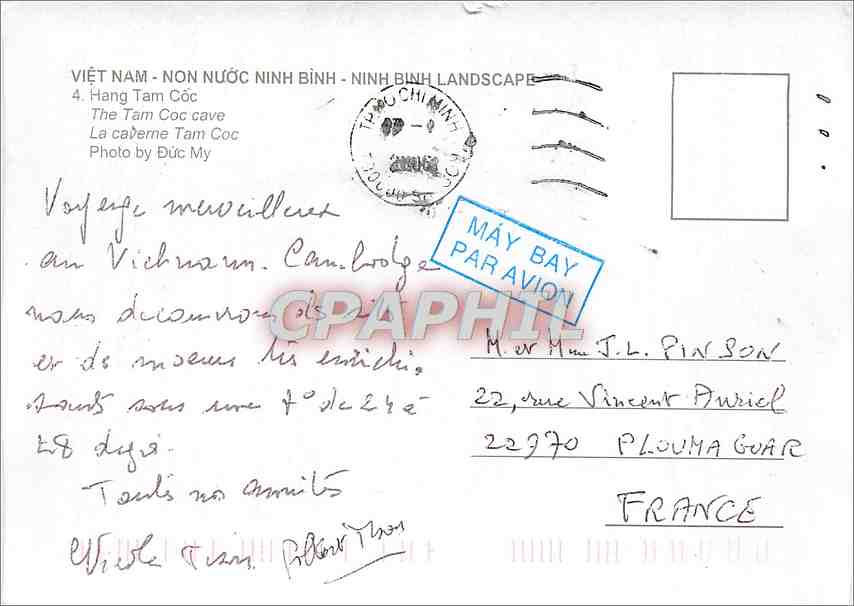 VIỆT NAM - NON NƯỚC NINH BÌNH - NINH BINH LANDSCAPE
4. Hang Tam Cốc
The Tam Coc cave
La caverne Tam Coc
Photo by Đức My
TP HO CHI MINH
MÁY BAY
PAR AVION
CPAPHIL
Voyage merveilleux
au Vietnam. Cambodge
nous découvrons des
et de moeurs très
sous une t° de 24 à
28 degrés.
Toutes nos amitiés
Nicole
M. et Mme J.L. PINSON
22, rue Vincent Auriol
22970 PLOUMAGOAR
FRANCE